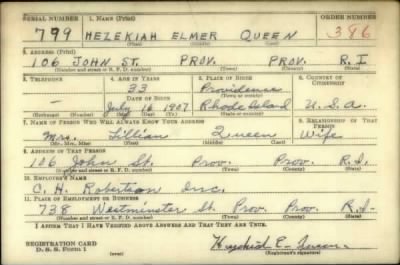 SERIAL NUMBER 1. NAME (Print) ORDER NUMBER
799 HEZEKIAH ELMER QUEEN 386
(First) (Middle) (Last)
2. ADDRESS (Print)
106 JOHN ST. PROV. PROV. R.I
(Number and street or R. F. D. number) (Town) (County) (State)
3. TELEPHONE 4. AGE IN YEARS 5. PLACE OF BIRTH 6. COUNTRY OF CITIZENSHIP
33 Providence
DATE OF BIRTH (Town or county)
July 16 1907 Rhode Island U.S.a.
(Exchange) (Number) (Mo.) (Day) (Yr.) (State or country)
7. NAME OF PERSON WHO WILL ALWAYS KNOW YOUR ADDRESS 8. RELATIONSHIP OF THAT PERSON
Mrs. Lillian Queen Wife
(Mr., Mrs., Miss) (First) (Middle) (Last)
9. ADDRESS OF THAT PERSON
106 John St. Prov. Prov. R.I.
(Number and street or R. F. D. number) (Town) (County) (State)
10. EMPLOYER'S NAME
C. H. Robertson Inc.
11. PLACE OF EMPLOYMENT OR BUSINESS
738 Westminster St. Prov. Prov. R.I.
(Number and street or R. F. D. number) (Town) (County) (State)
I AFFIRM THAT I HAVE VERIFIED ABOVE ANSWERS AND THAT THEY ARE TRUE.
REGISTRATION CARD
D. S. S. Form 1 (over) (Registrant's signature)